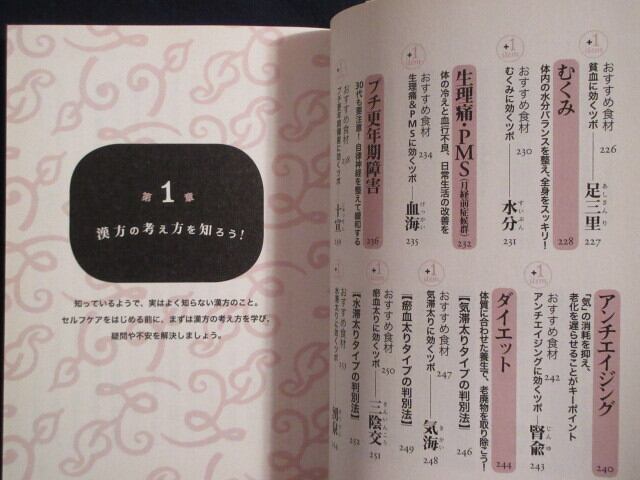 +1
item
おすすめ食材 226
貧血に効くツボ──足三里 227
あしさんり
むくみ 228
体内の水分バランスを整え、全身をスッキリ!
+1
item
おすすめ食材 230
むくみに効くツボ──水分 231
すいぶん
生理痛・PMS(月経前症候群) 232
体の冷えと血行不良、日常生活の改善を
+1
item
おすすめ食材 234
生理痛&PMSに効くツボ──血海 235
けっかい
プチ更年期障害 236
30代も要注意!自律神経を整えて緩和する
おすすめ食材 238
プチ更年期障害に効くツボ
239
アンチエイジング 240
「気」の消耗を抑え、
老化を遅らせることがキーポイント
+1
item
おすすめ食材 242
アンチエイジングに効くツボ──腎兪 243
じんゆ
ダイエット 244
体質に合わせた養生で、老廃物を取り除こう!
【気滞太りタイプの判別法】 246
+1
item
おすすめ食材 247
気滞太りに効くツボ──気海 248
きかい
【瘀血太りタイプの判別法】 249
+1
item
おすすめ食材 250
瘀血太りに効くツボ──三陰交 251
さんいんこう
【水滞太りタイプの判別法】 252
おすすめ食材 253
水滞太りに効くツボ
第1章
漢方の考え方を知ろう!
知っているようで、実はよく知らない漢方のこと。
セルフケアをはじめる前に、まずは漢方の考え方を学び、
疑問や不安を解決しましょう。